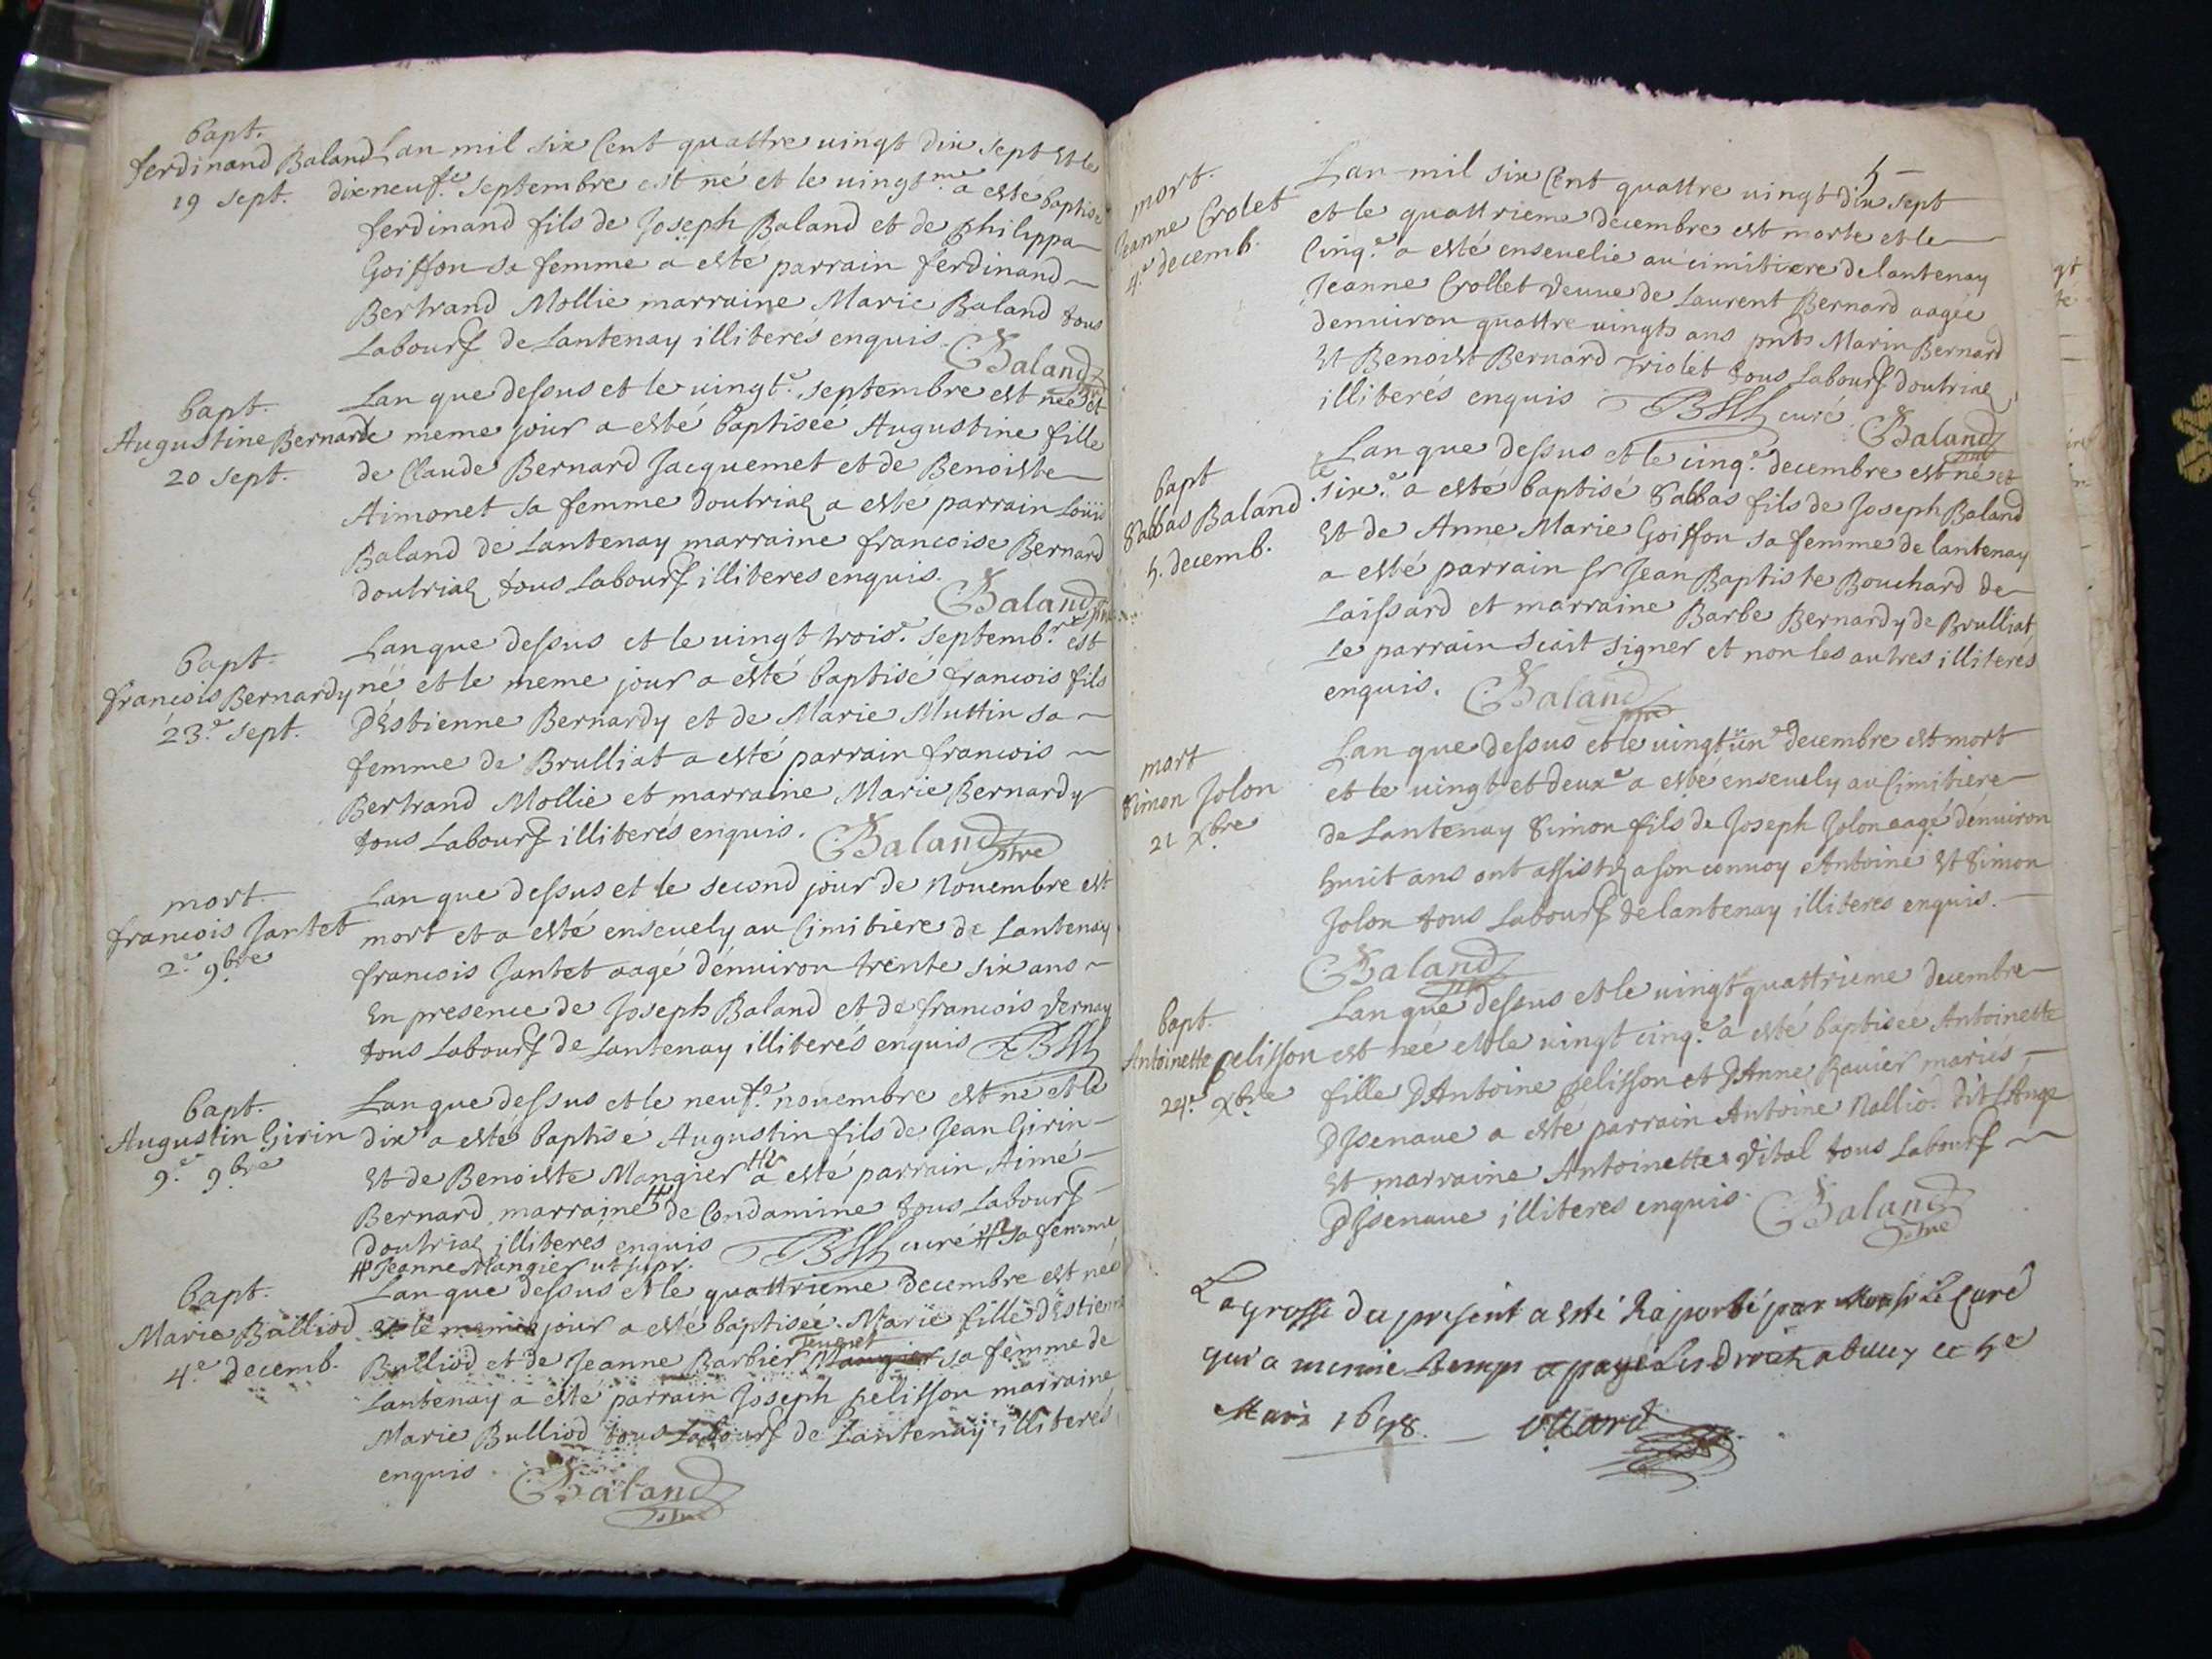 bapt.
ferdinand Baland
19 sept.
Lan mil six Cent quattre vingt dix sept et le
dixneuf.e septembre est né et le vingt.me a esté baptisé
ferdinand fils de Joseph Baland et de philippa
Goiffon sa femme a esté parrain ferdinand
Bertrand Mollie marraine Marie Baland tous
Labours de Lantenay illiteres enquis. Baland
bapt.
Augustine Bernard
20 sept.
Lan que dessus et le vingt.e septembre est née et
le meme jour a esté baptisée Augustine fille
de Claude Bernard Jacquemet et de Benoiste
Aimonet sa femme doutriaz a esté parrain Louis
Baland de Lantenay marraine francoise Bernard
doutriaz tous Labours illiteres enquis. Baland
bapt.
francois Bernardy
23.e sept.
Lan que dessus et le vingt trois.e septemb.re est
né et le meme jour a esté baptisé francois fils
DEstienne Bernardy et de Marie Muttin sa
femme de Brulliat a esté parrain francois
Bertrand Mollie et marraine Marie Bernardy
tous Labours illiterés enquis. Baland ptre
mort.
francois Jantet
2.e 9bre
Lan que dessus et le second jour de Novembre est
mort et a esté ensevely au Cimitiere de Lantenay
francois Jantet aagé denviron trente six ans
En presence de Joseph Baland et de francois Vernay
tous Labours de Lantenay illiterés enquis
bapt.
Augustin Girin
9.e 9bre
Lan que dessus et le neuf.e novembre est né et le
dix.e a esté baptisé Augustin fils de Jean Girin
Et de Benoiste Mangier # a esté parrain Aimé
Bernard marraine # de Condamine tous Labours
doutriaz illiterés enquis curé # sa femme
# Jeanne Mangier ut supr.
bapt.
Marie Bulliod
4.e decemb.
Lan que dessus et le quattrieme decembre est née
et le meme jour a esté baptisée Marie fille dEstienne
Bulliod et de Jeanne Barbier sa femme de
Lantenay a esté parrain Joseph pelisson marraine
Marie Bulliod tous Labours de Lantenay illiterés
enquis Baland
5
mort.
Jeanne Crolet
4.e decemb.
Lan mil six Cent quattre vingt dix sept
et le quattrieme decembre est morte et le
Cinq.e a esté ensevelie au cimitiere de lantenay
Jeanne Crollet veuve de Laurent Bernard aagée
denviron quattre vingts ans pnts Marin Bernard
Et Benoist Bernard Triolet tous Labours doutriaz
illiterés enquis curé. Baland
bapt
Sabbas Baland
5. decemb.
Lan que dessus et le cinq.e decembre est né et
le six.e a esté baptisé Sabbas fils de Joseph Baland
Et de Anne Marie Goiffon sa femme de lantenay
a esté parrain sr Jean Baptiste Bouchard de
Laissard et marraine Barbe Bernardy de Brulliat
Le parrain scait signer et non les autres illiteres
enquis. Baland ptre
mort
Simon Jolon
21 Xbre
Lan que dessus et le vingt un.e decembre est mort
et le vingt et deux.e a esté ensevely au Cimitiere
de Lantenay Simon fils de Joseph Jolon aagé denviron
huit ans ont assistez a son convoy Antoine Et Simon
Jolon tous Labours de lantenay illiterés enquis.
Baland
bapt.
Antoinette pelisson
24.e Xbre
Lan que dessus et le vingt quattrieme decembre
est née et le vingt cinq.e a esté baptisée Antoinette
fille DAntoine pelisson et DAnne Ravier mariés
DIsenave a esté parrain Antoine Nallio. dit lAnge
Et marraine Antoinette Vital tous Labours
DIsenave illiteres enquis. Baland ptre
La grosse du present a esté Raporté par Monsr Le Curé
qui a mesme temps payé Les droitz a ce 5e
Mars 1698.